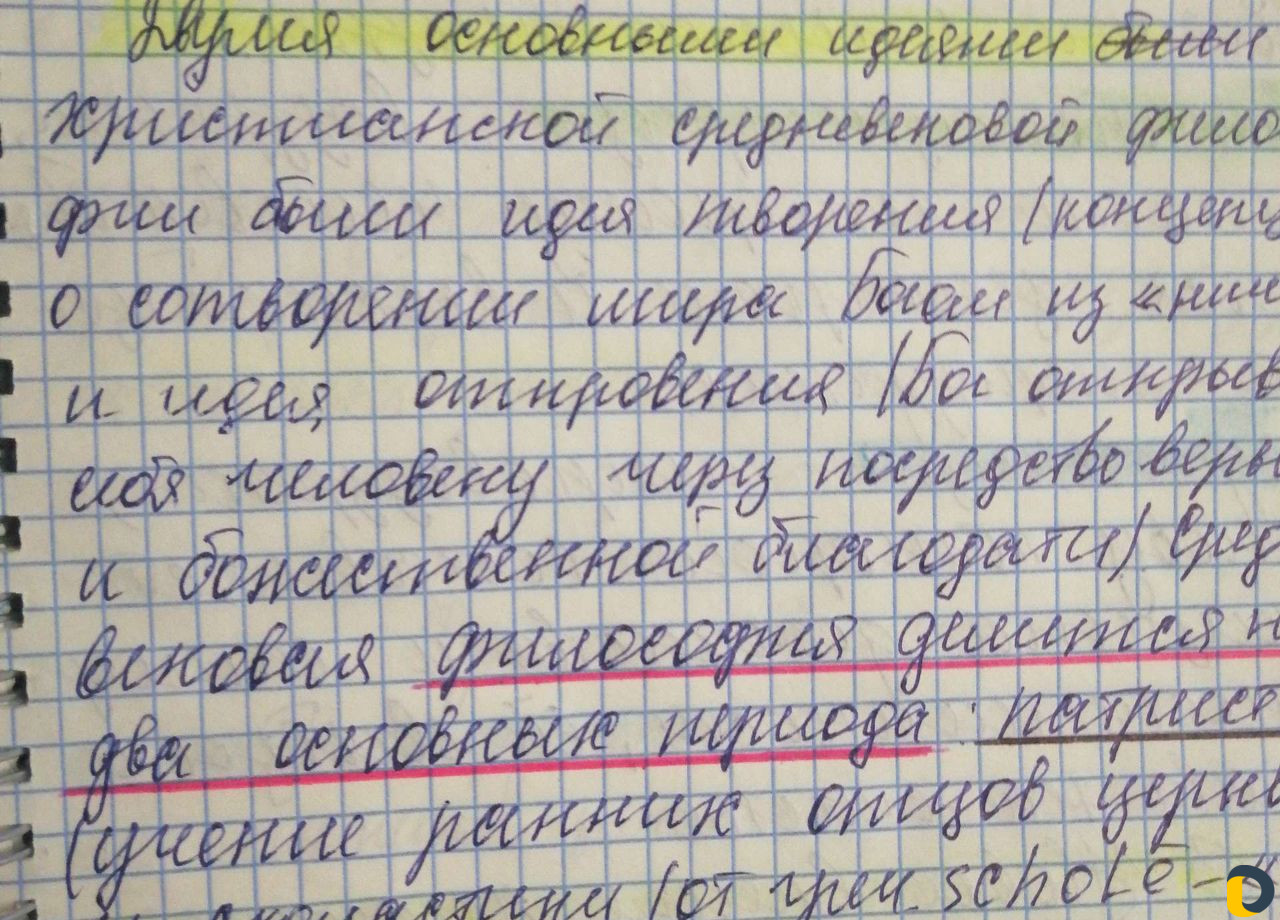 Двумя основными идеями были
христианской средневековой фило
фии были идея творения (концепц
о сотворении мира Богом из "нич
и идея откровения (Бог открыв
себя человеку через посредство веры
и божественной благодати) Сред
вековая философия делится н
два основных периода: патрист
(учение ранних отцов церкв
схоластики (от греч. scholē –